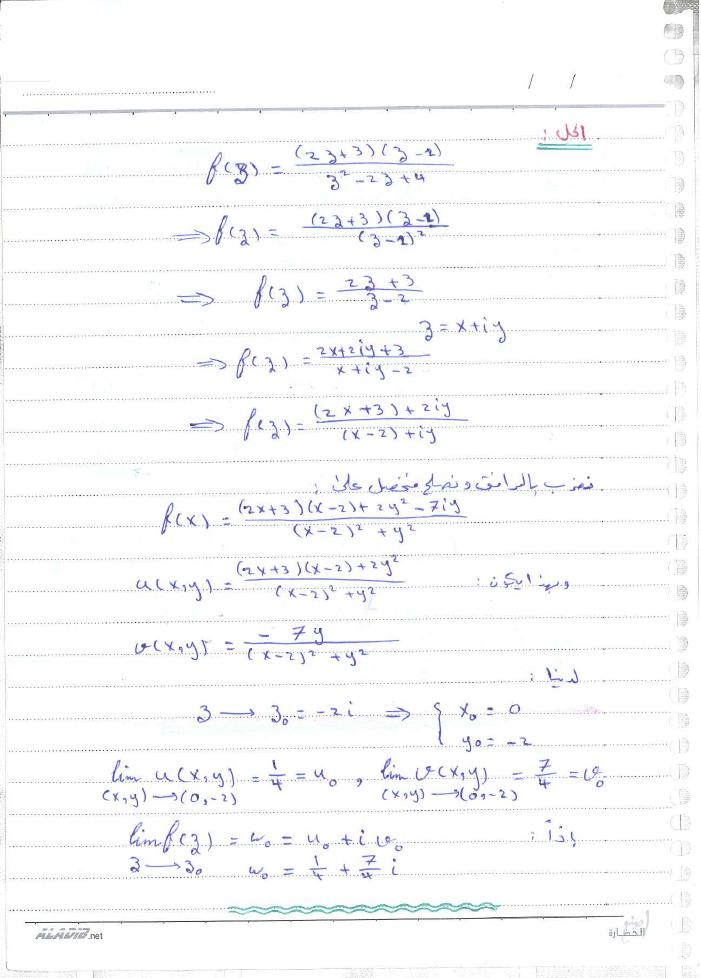 / /
الحل :
f(z) = (2z+3)(z-2) / z² - 2z + 4
⇒ f(z) = (2z+3)(z-2) / (z-2)²
⇒ f(z) = 2z+3 / z-2
z = x+iy
⇒ f(z) = 2x+2iy+3 / x+iy-2
⇒ f(z) = (2x+3)+2iy / (x-2)+iy
نضرب بالمرافق ونصلح فنحصل على :
f(x) = (2x+3)(x-2)+2y²-7iy / (x-2)²+y²
وبهذا يكون : u(x,y) = (2x+3)(x-2)+2y² / (x-2)²+y²
v(x,y) = -7y / (x-2)²+y²
لدينا :
z → z₀ = -2i ⇒ { x₀ = 0
y₀ = -2
lim u(x,y) = 1/4 = u₀ , lim v(x,y) = 7/4 = v₀
(x,y)→(0,-2) (x,y)→(0,-2)
إذاً : lim f(z) = w₀ = u₀ + i v₀
z → z₀ w₀ = 1/4 + 7/4 i
ALADIB.net
الحضارة